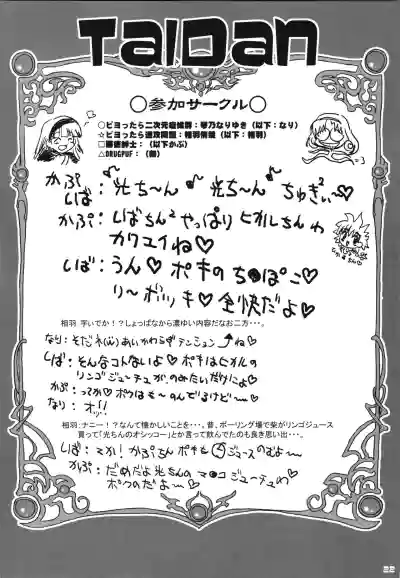 TaiDan
○参加サークル○
○ピヨったら二次元症候群:琴乃なりゆき(以下:なり)
(以下:相羽)
(以下:かぶ)
△DRUGPUF:
かぷ
しば:光ち〜ん♪光ち〜ん♪ちゅぎぃ〜
かぷ:しばちん2やっぱりヒカルちんわ
カワユイね♡
しば:うん♡ボキのち●ぽこ
リ〜ボッキ♡全快だよ♡
相羽 宇いでか!?しょっぱなから濃ゆい内容だなお二方・・・。
なり:そだネ(心)あいかわらずテンション↑ね♡
しば:そんなコトないよ♡ボキはヒカルの
リンゴジューチュがのみたいだけにょ♡
かぷ:ってか♡ボクはも〜のんでるけど〜♡
なり:オッ
相羽:ナニー!?なんて懐かしいことを・・・。昔、ボーリング場で柴がリンゴジュース
買って「光ちんのオシッコー」とか言って飲んでたのも良き思い出・・・。
しば:マカ!かぷちんボキも ジュースのむよ〜
かぷ:だめだよ光ちんの マ●コジューチュわ
ボクのだよ〜♡
22